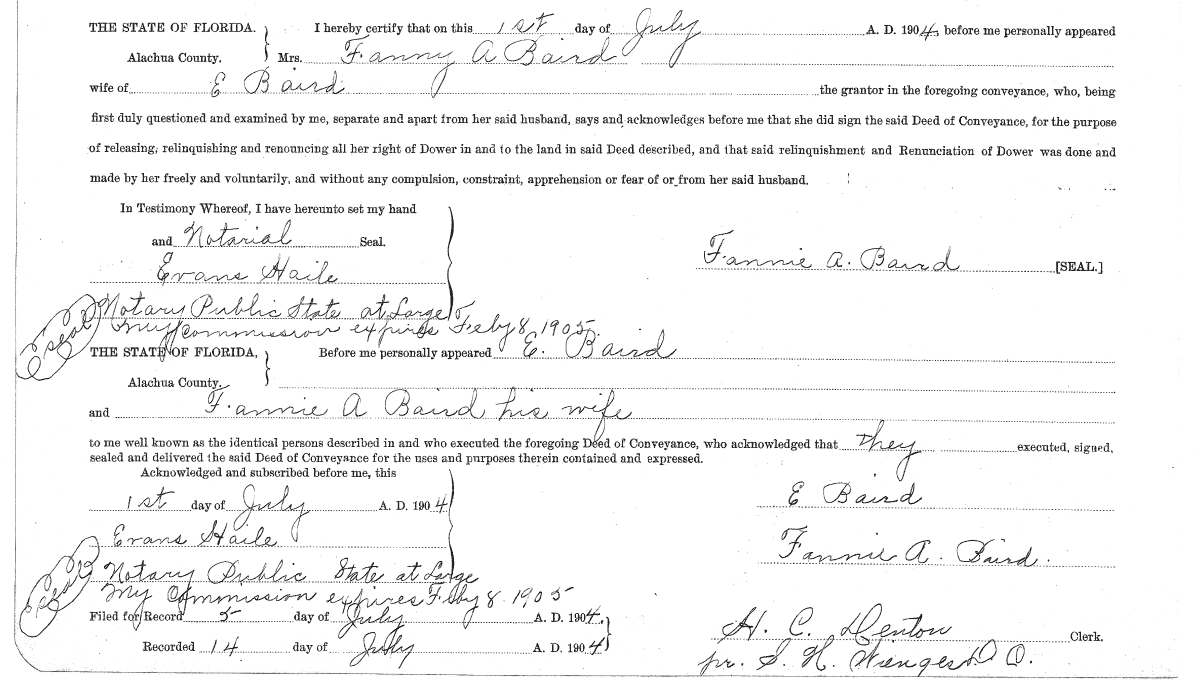 THE STATE OF FLORIDA. } I hereby certify that on this 1st day of July A. D. 1904, before me personally appeared
Alachua County. Mrs. Fanny A Baird
wife of E Baird the grantor in the foregoing conveyance, who, being
first duly questioned and examined by me, separate and apart from her said husband, says and acknowledges before me that she did sign the said Deed of Conveyance, for the purpose
of releasing, relinquishing and renouncing all her right of Dower in and to the land in said Deed described, and that said relinquishment and Renunciation of Dower was done and
made by her freely and voluntarily, and without any compulsion, constraint, apprehension or fear of or from her said husband.
In Testimony Whereof, I have hereunto set my hand
and Notarial Seal.
Fannie A. Baird [SEAL.]
Evans Haile
Notary Public State at Large
Seal my Commission expires Feby 8, 1905.
THE STATE OF FLORIDA, } Before me personally appeared E. Baird
Alachua County.
and Fannie A Baird his wife
to me well known as the identical persons described in and who executed the foregoing Deed of Conveyance, who acknowledged that they executed, signed,
sealed and delivered the said Deed of Conveyance for the uses and purposes therein contained and expressed.
Acknowledged and subscribed before me, this
1st day of July A. D. 1904
E Baird
Evans Haile
Fannie A. Baird.
Seal Notary Public State at Large
My Commission expires Feby 8 1905
Filed for Record 5 day of July A. D. 1904.
H. C. Denton Clerk.
Recorded 14 day of July A. D. 1904
pr. S. H. Wienges D. C.